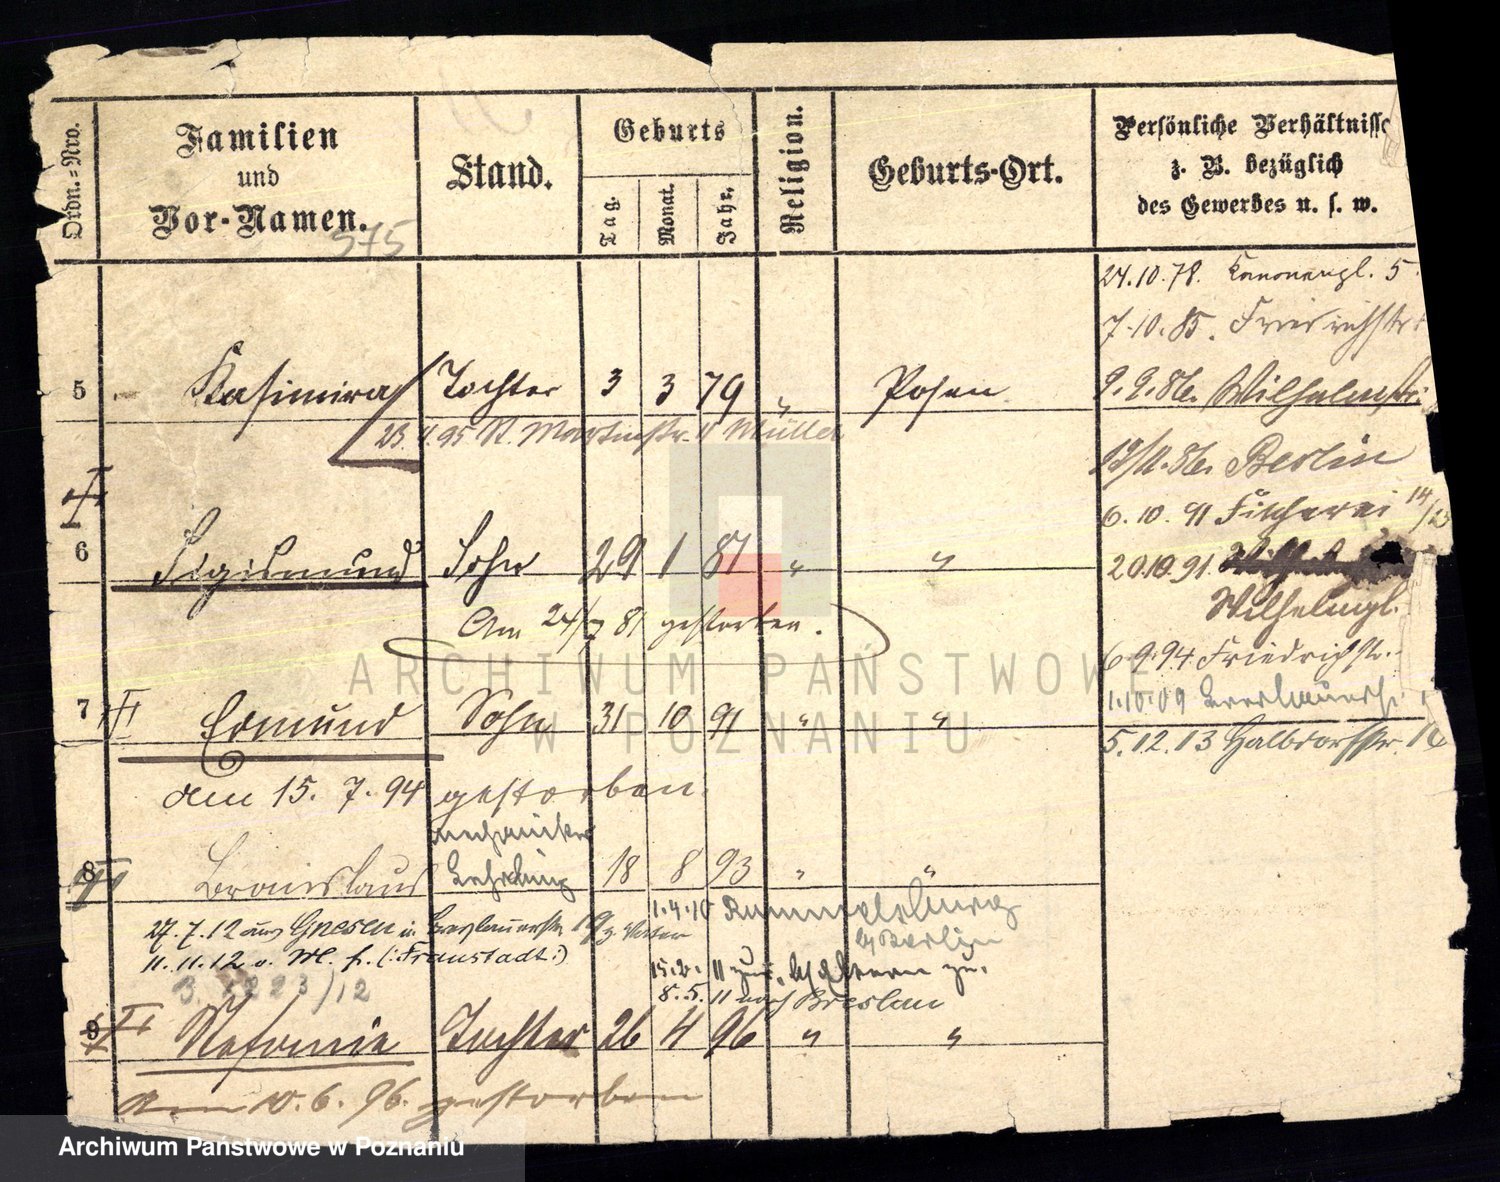 Ordn.=Nro.
Familien
und
Vor-Namen.
575
Stand.
Geburts
Tag.
Monat.
Jahr.
Religion.
Geburts-Ort.
Persönliche Verhältnisse
z. B. bezüglich
des Gewerbes u. s. w.
24.10.78. Kanonenpl. 5
7.10.85. Friedrichstr.
5 Kasimira Tochter 3 3 79 " Posen
9.9.86. Wilhelmstr.
23. 4. 95 St. Martinstr. Müller
Berlin
6.10.91 Fischerei 14/15
6 Sigismund Sohn 29 1 81 " "
20.10.91.
Wilhelmpl.
Am 24/7 81 gestorben.
6.9.94 Friedrichstr.
1.10.09
7 Edmund Sohn 31 10 91 " "
5.12.13 Halbdorfstr.
am 15. 7. 94 gestorben.
Mechaniker
8 Bronislaus Lehrling 18 8 93 " "
1.4.10 Rummelsburg
b/Berlin
27.7.12 aus Gnesen
11.11.12 v. M. f. (:Fraustadt:)
15.2.11 zu d. Eltern zu.
8.5.11 nach Breslau
9 Stefanie Tochter 26 4 96 " "
am 10.6.96. gestorben
ARCHIWUM PAŃSTWOWE
W POZNANIU
Archiwum Państwowe w Poznaniu